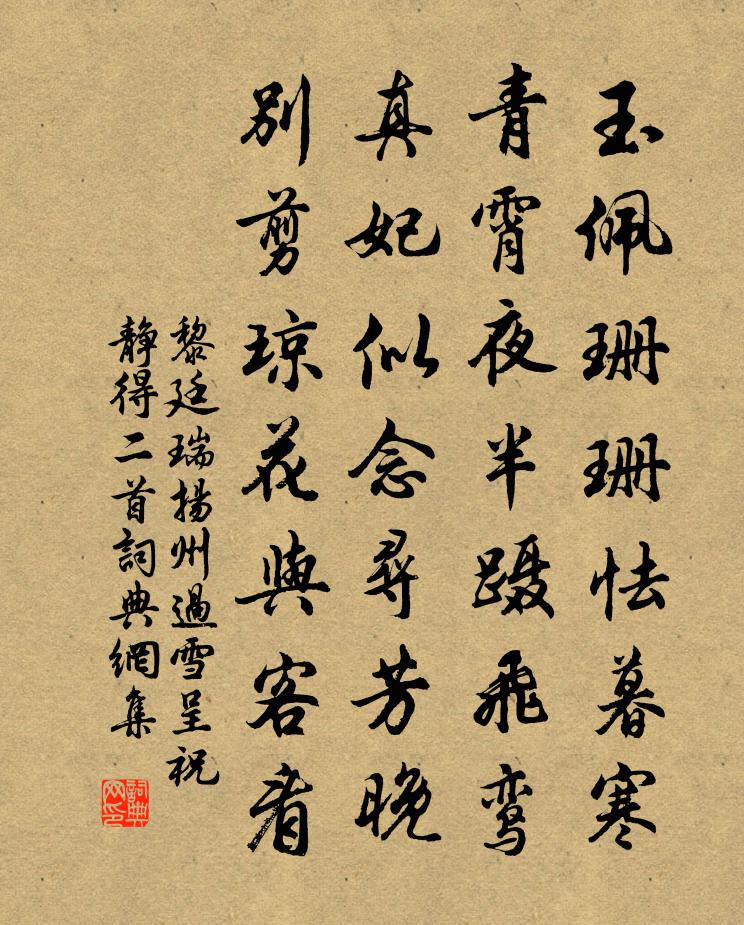 玉佩珊珊怯暮寒
青霄夜半蹑飛鸾
真妃似念尋芳晚
别剪琼花與客看
黎廷瑞揚州過雪呈祝
靜得二首詞典網集
詞典网印